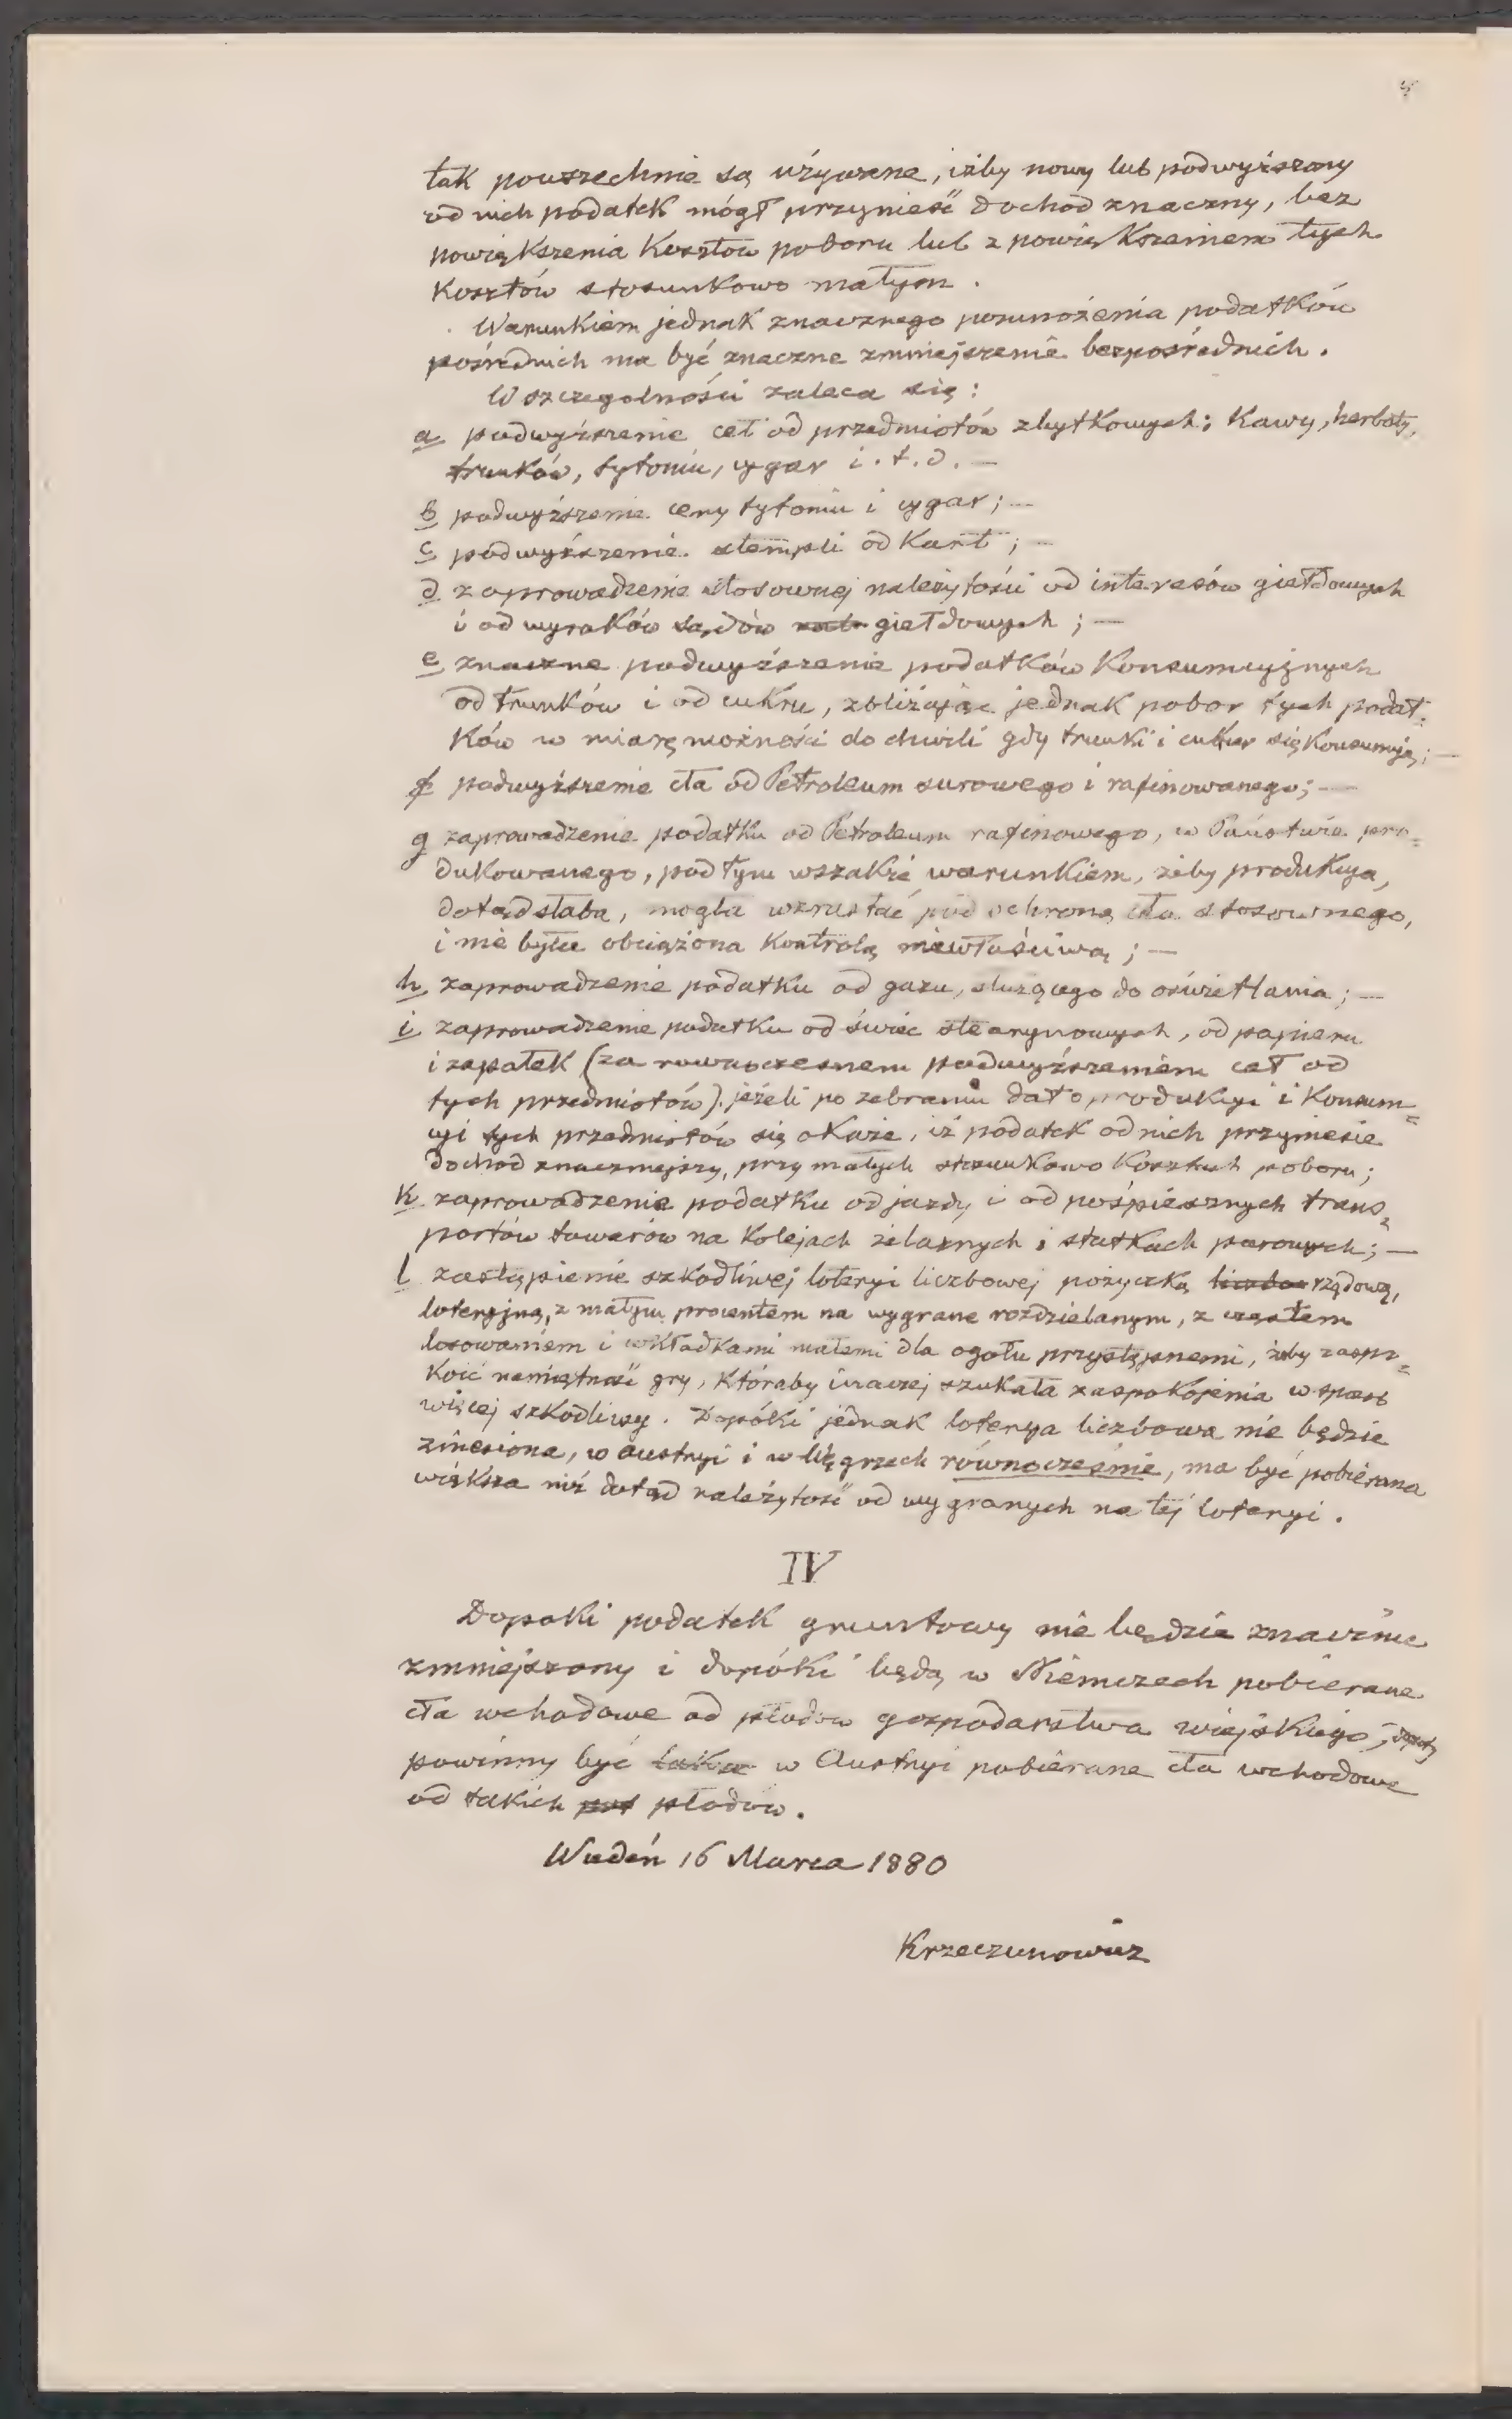 tak powszechnie są używane, iżby nowy lub podwyższony
od nich podatek mógł przynieść dochód znaczny, bez
powiększenia kosztów poboru lub z powiększeniem tych
kosztów stosunkowo małym.
Warunkiem jednak znacznego pomnożenia podatków
pośrednich ma być znaczne zmniejszenie bezpośrednich.
W szczegolności zaleca się:
a podwyższenie ceł od przedmiotów zbytkowych: Kawy, herbaty,
trunków, tytoniu, cygar i.t.d. —
b podwyższenie ceny tytoniu i cygar; —
c podwyższenie stempli od Kart; —
d zaprowadzenie stosownej należytości od interesów giełdowych
i od wyroków sądów giełdowych; —
e znaczne podwyższenie podatków Konsumcyjnych
od trunków i od cukru, zbliżając jednak pobor tych podat=
ków w miarę możności do chwili gdy trunki i cukier się Konsumują; —
f podwyższenie cła od Petroleum surowego i rafinowanego; —
g zaprowadzenie podatku od Petroleum rafinowego, w Państwie pro=
dukowanego, pod tym wszakże warunkiem, żeby produkcya,
dotąd słaba, mogła wzrastać pod ochroną cła stosownego,
i nie była obciążona Kontrolą niewłaściwą; —
h zaprowadzenie podatku od gazu, służącego do oświetlania; —
i zaprowadzenie podatku od świec stearynowych, od papieru
i zapałek (za rownoczesnem podwyższeniem ceł od
tych przedmiotów) jeżeli po zebraniu dat o produkcyi i Konsum=
cyi tych przedmiotów się okaże, iż podatek od nich przyniesie
dochod znaczniejszy, przy małych stosunkowo Kosztach poboru;
k zaprowadzenie podatku od jazdy i od pośpiesznych trans=
portów towarów na Kolejach żelaznych i statkach parowych; —
l zastąpienie szkodliwej loteryi liczbowej pożyczką rządową,
loteryjną, z małym procentem na wygrane rozdzielanym, z częstem
losowaniem i wkładkami małemi dla ogołu przystępnemi, żeby zaspo=
koić namiętność gry, któraby inaczej szukała zaspokojenia w sposob
więcej szkodliwy. Dopóki jednak loterya liczbowa nie będzie
zniesiona, w Austryi i w Węgrzech równocześnie, ma być pobierana
większa niż dotąd należytość od wygranych na tej loteryi.
IV
Dopoki podatek gruntowy nie będzie znacznie
zmniejszony i dopóki będą w Niemczech pobierane
cła wchodowe od płodow gospodarstwa wiejskiego, dopoty
powinny być w Austryi pobierane cła wchodowe
od takich płodow.
Wiedeń 16 Marca 1880
Krzeczunowicz